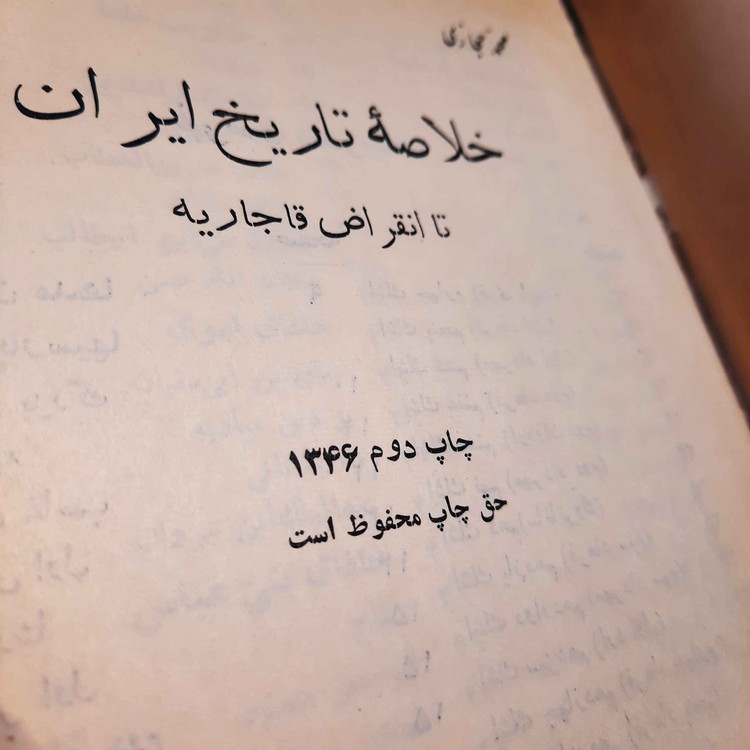 محمد حجازی
خلاصهٔ تاریخ ایران
تا انقراض قاجاریه
چاپ دوم ۱۳۴۶
حق چاپ محفوظ است